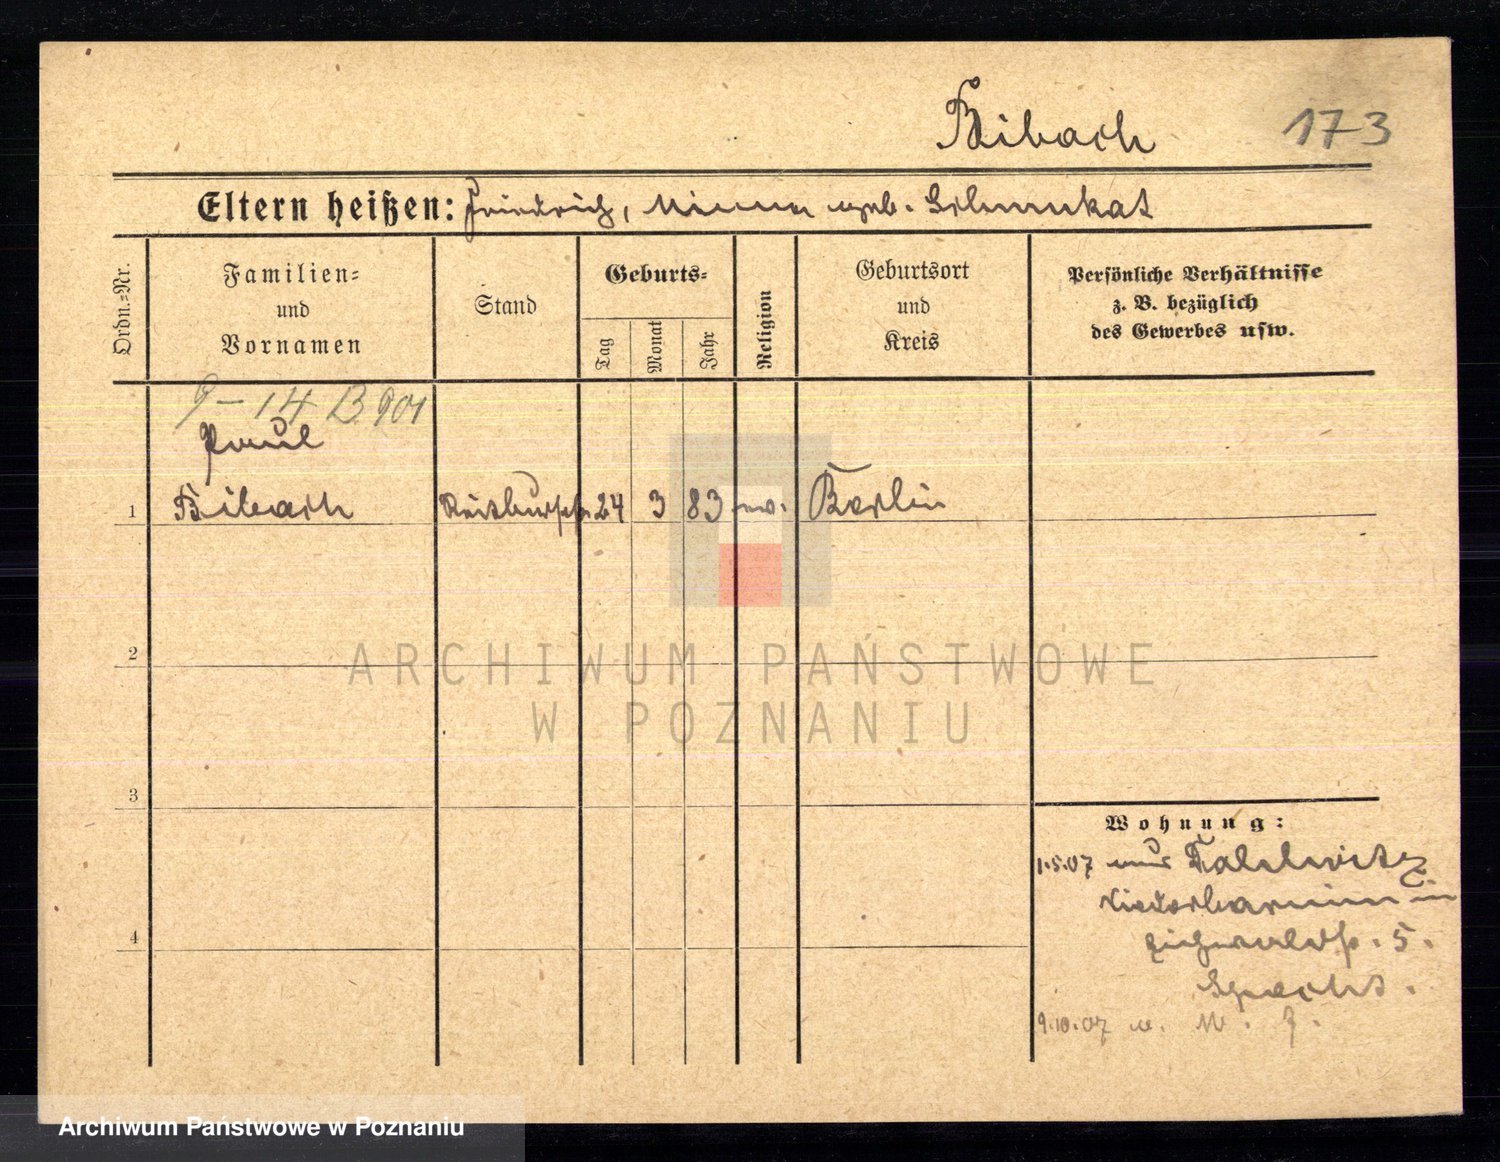 Bibach 173
Eltern heißen: Friedrich, Minna geb. Schmukat
Ordn.=Nr.
Familien= und Vornamen
Stand
Geburts=
Tag Monat Jahr
Religion
Geburtsort und Kreis
Persönliche Verhältnisse z. B. bezüglich des Gewerbes usw.
9-14 B 901
Paul
1 Bibach Reitbursche 24 3 83 ev. Berlin
2
3
4
Wohnung:
1.5.07 aus
Niederbarnim
5.
Specht.
9.10.07
ARCHIWUM PAŃSTWOWE
W POZNANIU
Archiwum Państwowe w Poznaniu